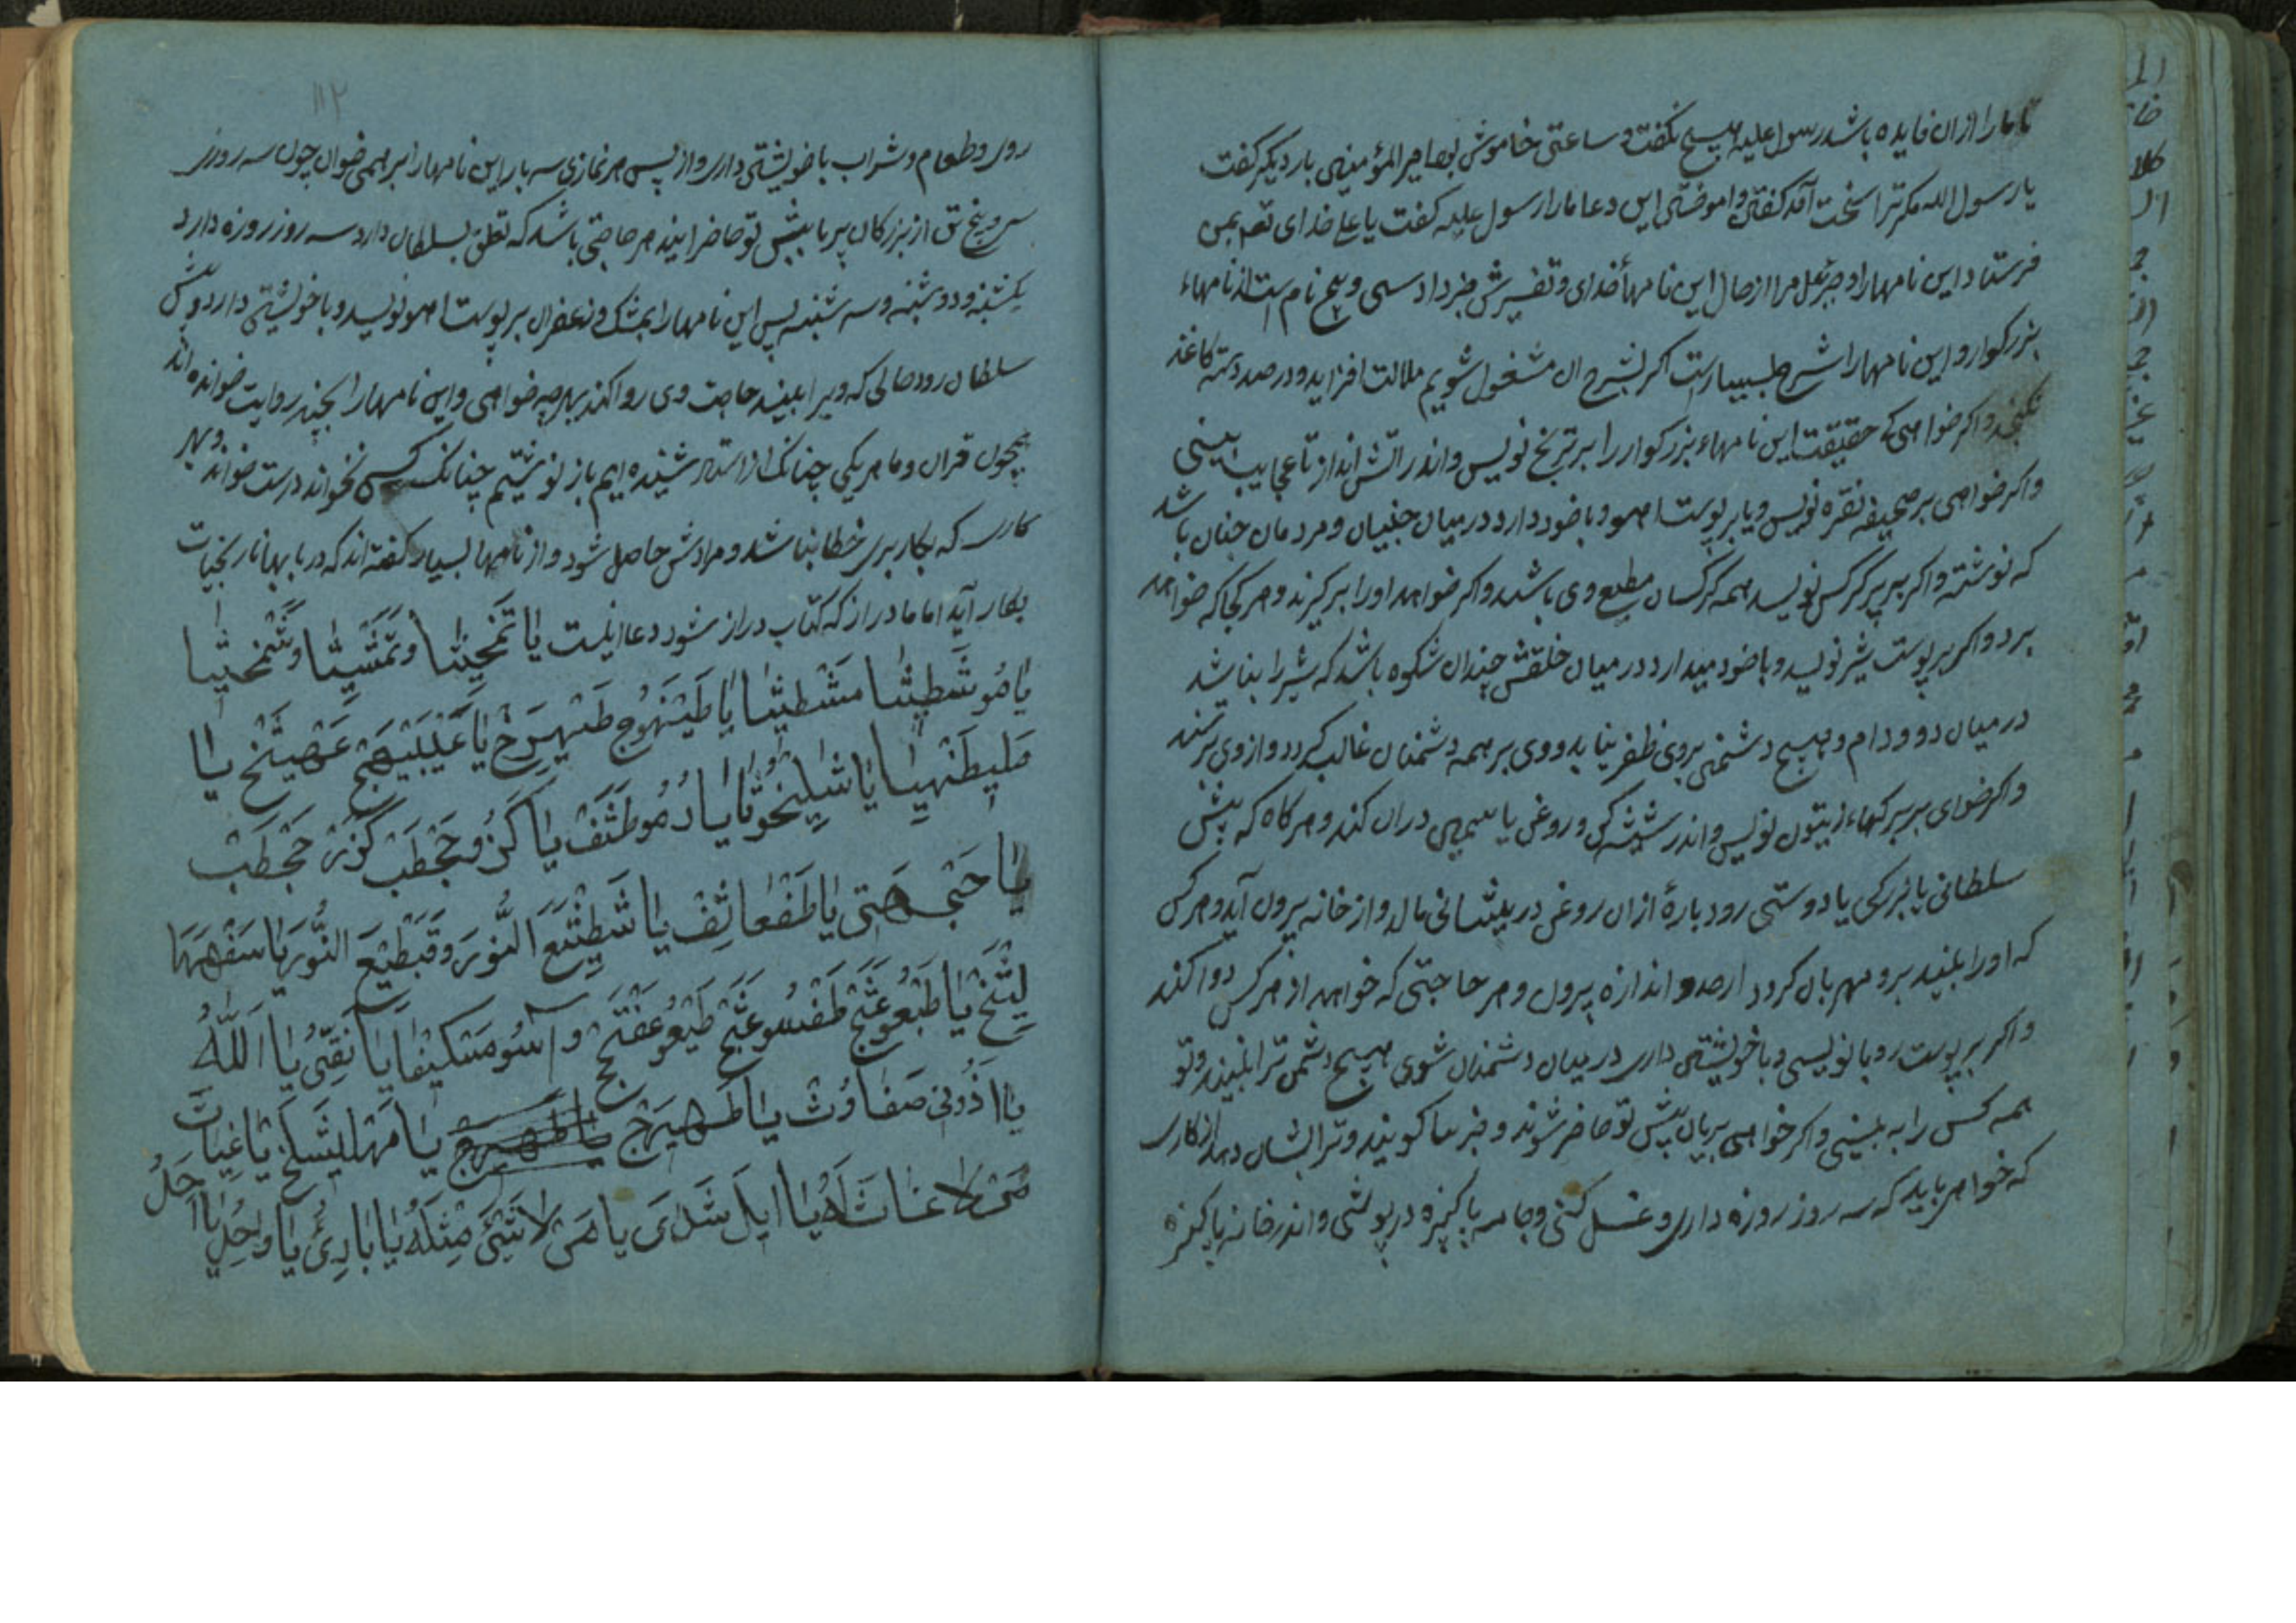 تا ما را ازان فایده باشد رسول علیه هیچ نکفت و ساعتی خاموش بود امیر المؤمنین باردیکر کفت
یا رسول الله مکر ترا سخت آمد کفتن و اموختن این دعا مارا رسول علیه کفت یا علی خدای تعم بمن
فرستاد این نامهارا و جبرئیل مرا ازحال این نامهاء خدای و تفسیرش خبر داد سی و پنج نام است از نامهاء
بزرکوار و این نامهارا شرح بسیارست اکر بشرح ان مشغول شویم ملالت افزاید و درصد دسته کاغذ
نکنجد و اکر خواهی که حقیقت این نامهاء بزرکوار را بر ترنج نویس و اندر اتش انداز تا عجایب بینی
و اکر خواهی بر صحیفه نقره نویس و یا بر پوست اهو و باخود دارد درمیان جنیان و مردمان چنان باشد
که نوشته و اکر بر پر کرکس نویسد همه کرکسان مطیع وی باشند و اکر خواهد اورا برکیرند و هرکجا که خواهد
برد و اکر بر پوست شیر نویسد و باخود میدارد در میان خلقش چندان شکوه باشد که شیر را بناشد
درمیان دد و دام و هیچ دشمنی بروی ظفر نیابد و وی بر همه دشمنان غالب کردد و از وی ترسند
و اکر خوای بر برکهاء زیتون نویس و اندر شیشه کن و روغن یاسمین دران کند و هرکاه که پیش
سلطانی یا بزرکی یا دوستی رود پارهٔ ازان روغن در پیشانی مالد و از خانه بیرون آید و هرکس
که اورا بیند برو مهربان کردد ازحد و اندازه بیرون و هر حاجتی که خواهد از هرکس روا کند
و اکر بر پوست روباه نویسی و باخویشتن داری درمیان دشمنان شوی هیچ دشمن ترا نبیند و تو
همه کس را به بینی و اکر خواهی پریان پیش تو حاضر شوند و خبرها کویند و ترا نشان دهد از کاری
که خواهی باید که سه روز روزه داری و غسل کنی و جامه پاکیزه درپوشی و اندر خانه پاکیزه
۱۱۲
روی و طعام و شراب باخویشتن داری و از پس هر نمازی سه بار این نامهارا برهمی خوان چون سه روز
سی و پنج تن از بزرکان پریا پیش تو حاضر ایند هر حاجتی باشد که تعلق بسلطان دارد سه روز روزه دارد
یکشنبه و دوشنبه و سه شنبه پس این نامهارا بمشک و زعفران بر پوست اهو نویسد و باخویشتن دارد و پیش
سلطان رود حالی که ویرا ببیند حاجت وی روا کند بهرچه خواهی و این نامهارا بچند روایت خوانده اند
همچون قران و ما هریکی چنانک از استاد شنیده ایم باز نوشتیم چنانک کس بخواند درست خواند و بهر
کاری که بکار بری خطا نباشد و مرادش حاصل شود و از نامها بسیار کفته اند که در بابها نارنجیات
بکار آید اما ما دراز که کتاب دراز شود دعا اینست یا تمخیثا وتمشیثا وشمخیثا
یا موشطیثا مشطیثا یا طیهوج طیهرج یا غیلیهج عهیثخ یا
ملیطهیا یا شلیخوثا یا دموطثف یا کزوججطب کوزن ججطب
یا حبی هتی یا طفعاثف یا شطثیع النور وقبطیع النور یا سفهها
لیتخ یا طبعوعتج طفسوعتج طیعوعفتج و اسومسکیفا یا نقی یا الله
یا اذونی صفاوث یا طهیرج یا طهیرج یا مهالیشلخ یا غیاث
من لا غیاث له یا ایل شدای یا من لا شیء مثله یا باری یا واحد یا احد